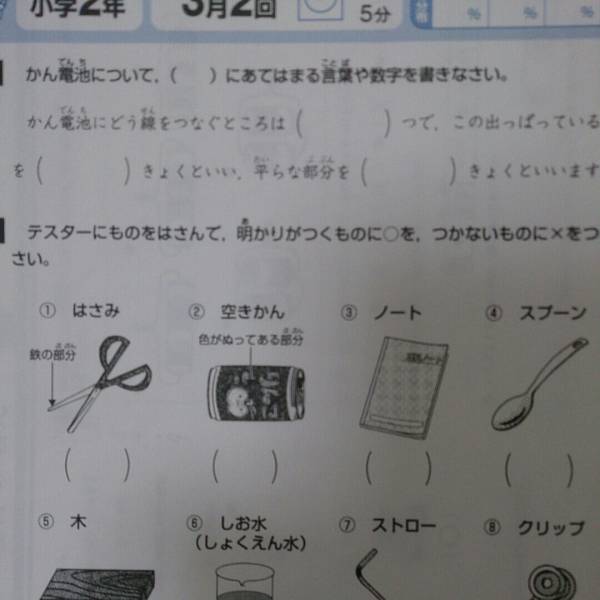 小学2年 3月2回 5分
% % %
かん電池について，（　　）にあてはまる言葉や数字を書きなさい。
かん電池にどう線をつなぐところは（　　）つで，この出っぱっている
を（　　）きょくといい，平らな部分を（　　）きょくといいます
テスターにものをはさんで，明かりがつくものに○を，つかないものに×をつ
さい。
① はさみ ② 空きかん ③ ノート ④ スプーン
鉄の部分 色がぬってある部分
（　　） （　　） （　　） （　　）
⑤ 木 ⑥ しお水 ⑦ ストロー ⑧ クリップ
（しょくえん水）